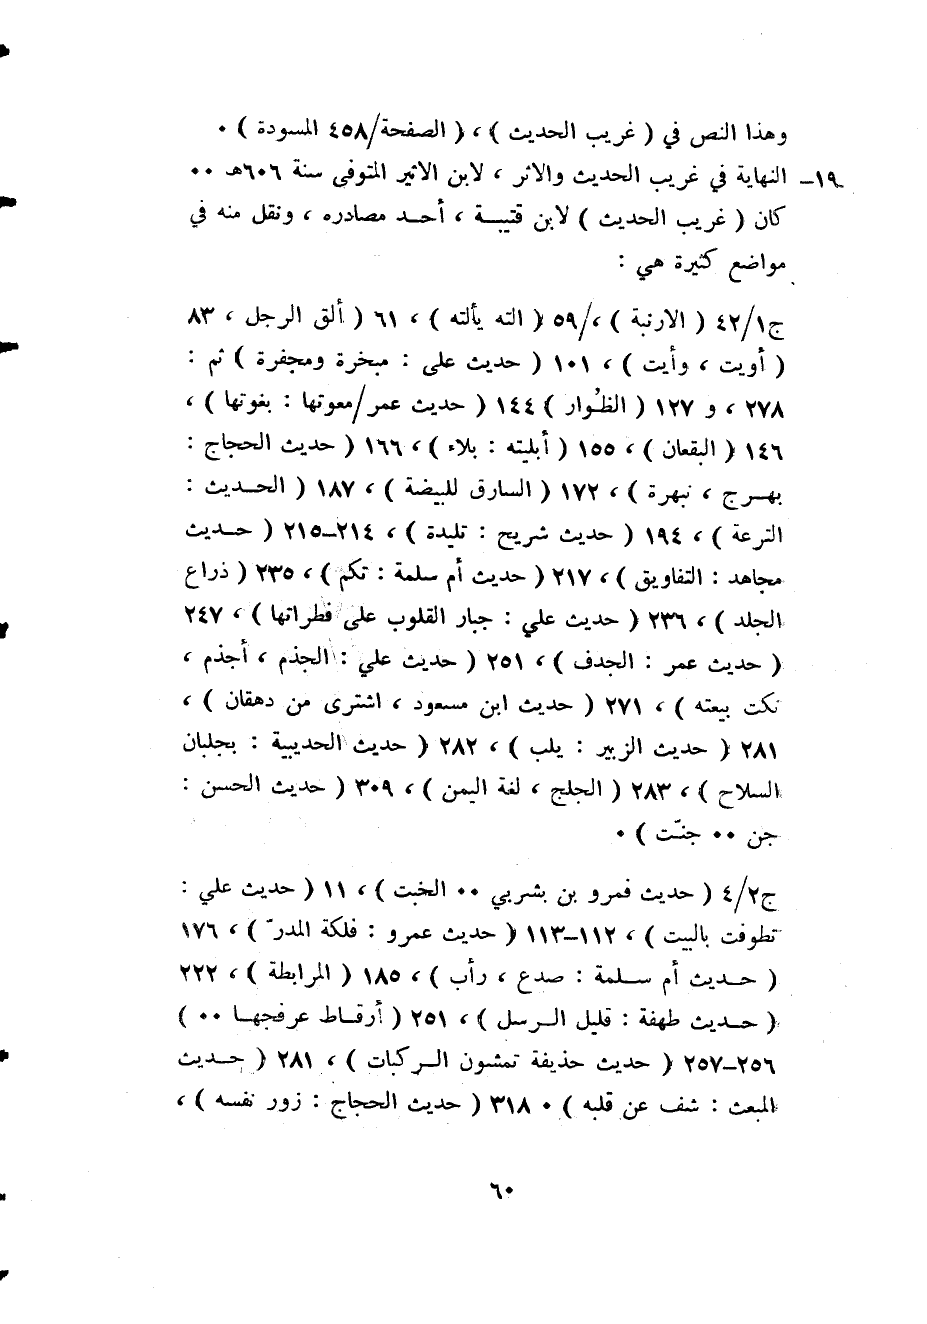 وهذا النص في ( غريب الحديث ) ، ( الصفحة/٤٥٨ المسودة ) ٠
١٩ـ النهاية في غريب الحديث والاثر ، لابن الاثير المتوفى سنة ٦٠٦هـ ٠٠
كان ( غريب الحديث ) لابن قتيبـة ، أحـد مصادره ، ونقل منه في
مواضع كثيرة هي :
ج٤٢/١ ( الارنبة ) ،/٥٩ ( الته يألته ) ، ٦١ ( ألق الرجل ، ٨٣
( أويت ، وأيت ) ، ١٠١ ( حديث على : مبخرة ومجفرة ) ثم :
٢٧٨ ، و ١٢٧ ( الظُوار ) ١٤٤ ( حديث عمر/معوتها : بغوتها ) ،
١٤٦ ( البقعان ) ، ١٥٥ ( أبليته : بلاء ) ، ١٦٦ ( حديث الحجاج :
بهـرج ، نبهرة ) ، ١٧٢ ( السارق للبيضة ) ، ١٨٧ ( الحـديث :
الترعة ) ، ١٩٤ ( حديث شريح : تليدة ) ، ٢١٤ـ٢١٥ ( حـديث
مجاهد : التفاويق ) ، ٢١٧ ( حديث أم سلمة : تكم ) ، ٢٣٥ ( ذراع
الجلد ) ، ٢٣٦ ( حديث علي : جبار القلوب على فطراتها ) ، ٢٤٧
( حديث عمر : الجدف ) ، ٢٥١ ( حديث علي : الجذم ، أجذم ،
نكت بيعته ) ، ٢٧١ ( حديث ابن مسعود ، اشترى من دهقان ) ،
٢٨١ ( حديث الزبير : يلب ) ، ٢٨٢ ( حديث الحديبية : بجلبان
السلاح ) ، ٢٨٣ ( الجلج ، لغة اليمن ) ، ٣٠٩ ( حديث الحسن :
جن ٠٠ جنّت ) ٠
ج٤/٢ ( حديث فمرو بن بشربي ٠٠ الخبت ) ، ١١ ( حديث علي :
تطوفت بالبيت ) ، ١١٢ـ١١٣ ( حديث عمرو : فلكة المدرّ ) ، ١٧٦
( حـديث أم سـلمة : صدع ، رأب ) ، ١٨٥ ( المرابطة ) ، ٢٢٢
( حـديث طهفة : قليل الـرسل ) ، ٢٥١ ( أرقـاط عرفجهـا ٠٠ )
٢٥٦ـ٢٥٧ ( حديث حذيفة تمشون الـركبات ) ، ٢٨١ ( حـديث
المبعث : شف عن قلبه ) ٠ ٣١٨ ( حديث الحجاج : زور نفسه ) ،
٦٠